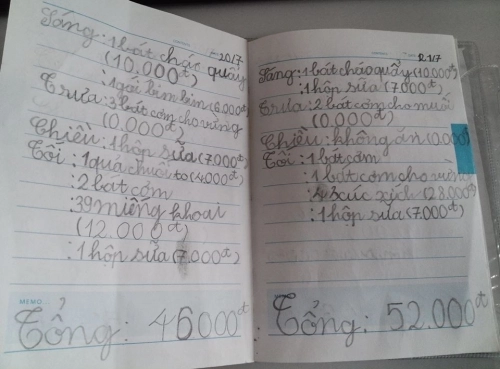 20/7
Sáng: 1 bát cháo quẩy
(10.000đ)
: 1 gói bim bim (6.000đ)
Trưa: 3 bát cơm cho vừng
(0.000đ)
Chiều: 1 hộp sữa (7.000đ)
Tối: 1 quả chuối to (4.000đ)
: 2 bát cơm
: 39 miếng khoai
(12.000đ)
: 1 hộp sữa (7.000đ)
MEMO
Tổng: 46000đ
21/7
Sáng: 1 bát cháo quẩy (10.000đ)
: 1 hộp sữa (7.000đ)
Trưa: 2 bát cơm cho muối
(0.000đ)
Chiều: không ăn (0.000đ)
Tối: 1 bát cơm
: 1 bát cơm cho vừng
: 4 xúc xích (28.000đ)
: 1 hộp sữa (7.000đ)
Tổng: 52.000đ